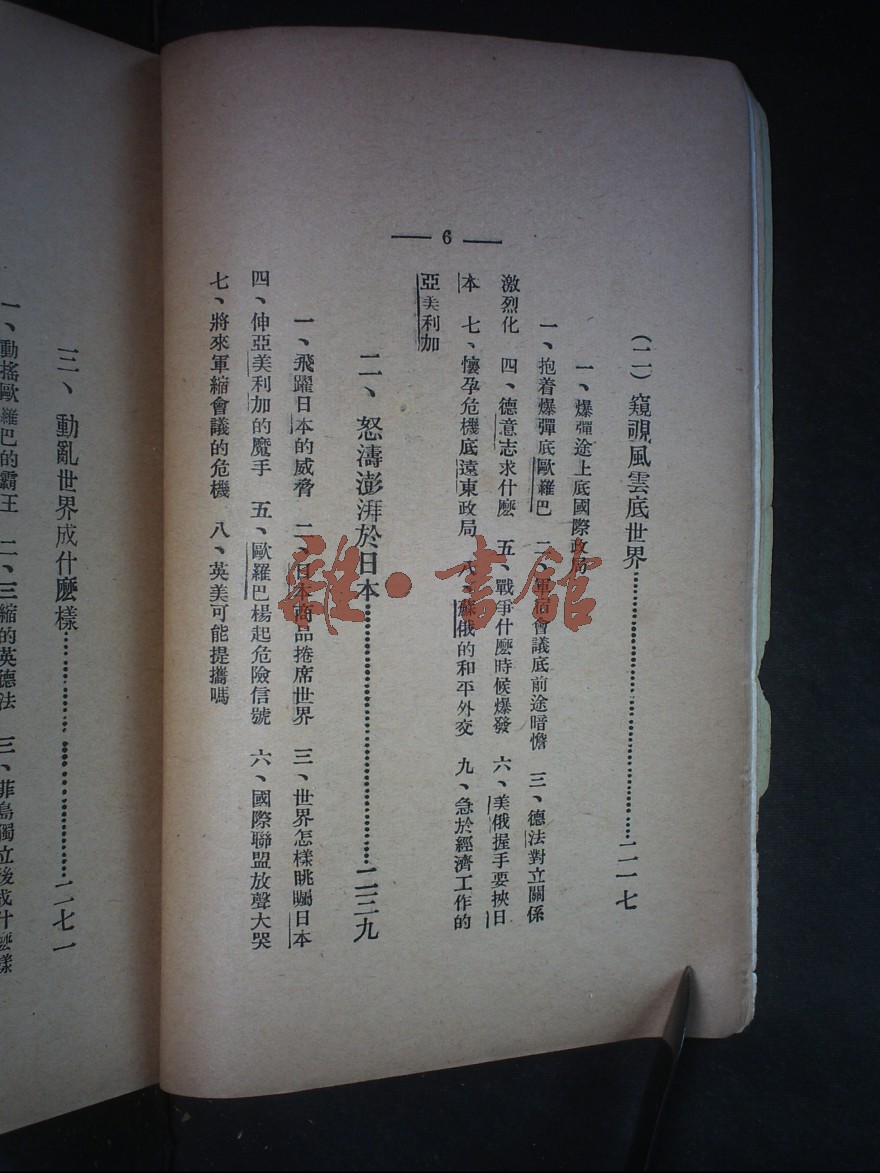 — 6 —
(二)窺視風雲底世界…………二一七
一、爆彈途上底國際政局
一、抱着爆彈底歐羅巴 二、軍縮會議底前途暗憺 三、德法對立關係
激烈化 四、德意志求什麽 五、戰爭什麽時候爆發 六、美俄握手要挾日
本 七、懷孕危機底遠東政局 八、蘇俄的和平外交 九、急於經濟工作的
亞美利加
二、怒濤澎湃於日本…………二三九
一、飛躍日本的威脅 二、日本商品捲席世界 三、世界怎樣眺矚日本
四、伸亞美利加的魔手 五、歐羅巴楊起危險信號 六、國際聯盟放聲大哭
七、將來軍縮會議的危機 八、英美可能提攜嗎
三、動亂世界成什麽樣…………二七一
一、動搖歐羅巴的霸王 二、三縮的英德法 三、菲島獨立後成什麽樣
雜·書館